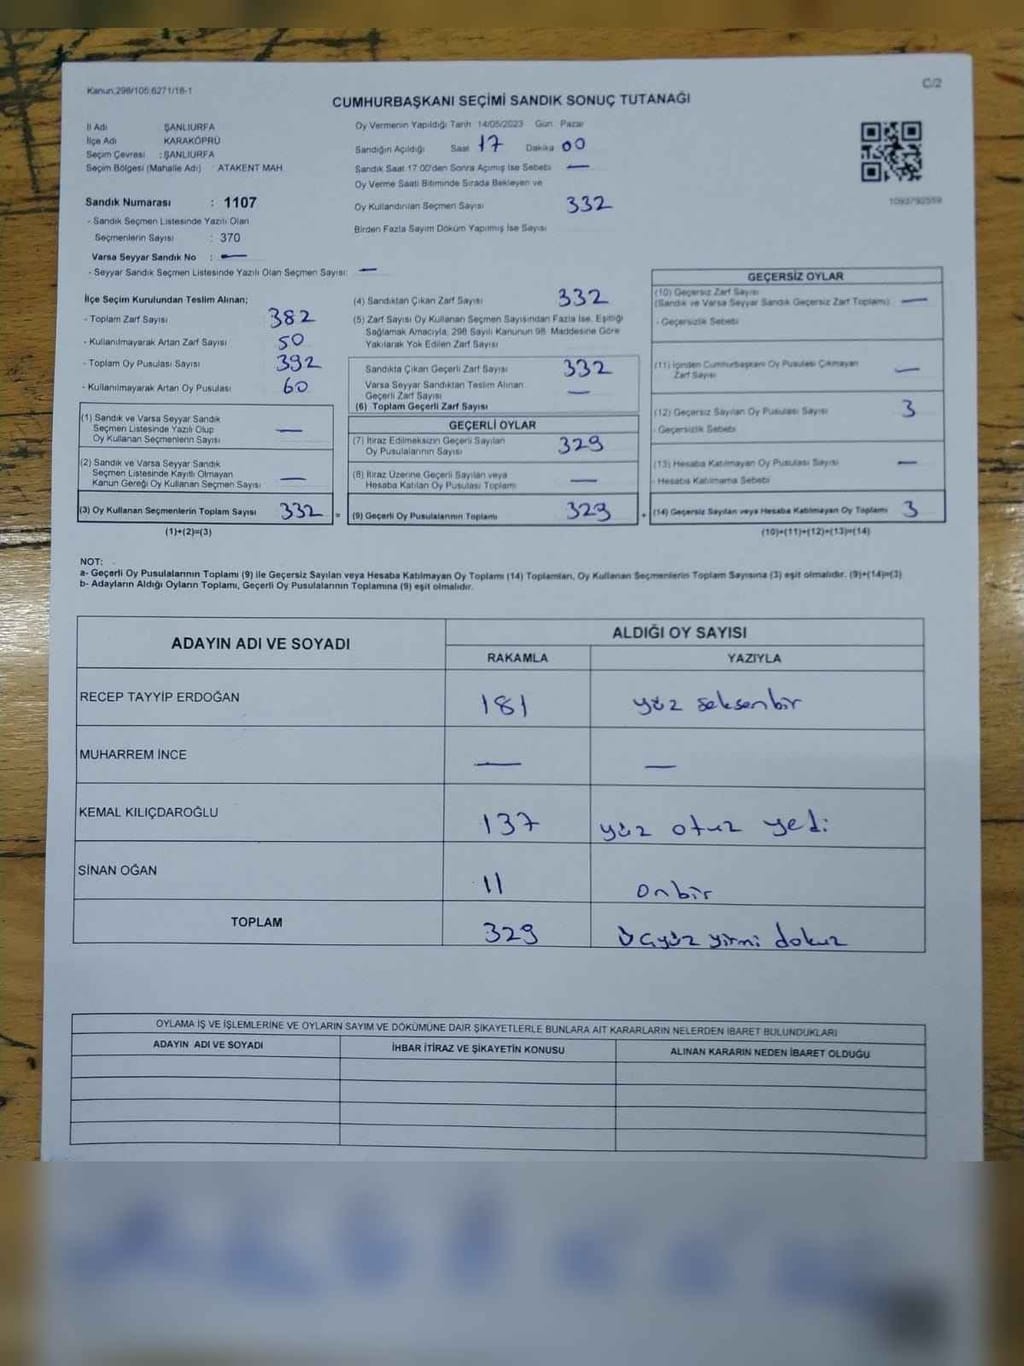 Kanun:298/105;6271/16-1
C/2
CUMHURBAŞKANI SEÇİMİ SANDIK SONUÇ TUTANAĞI
İl Adı ŞANLIURFA
İlçe Adı KARAKÖPRÜ
Seçim Çevresi : ŞANLIURFA
Seçim Bölgesi (Mahalle Adı) : ATAKENT MAH
Sandık Numarası : 1107
- Sandık Seçmen Listesinde Yazılı Olan
Seçmenlerin Sayısı : 370
Varsa Seyyar Sandık No : —
- Seyyar Sandık Seçmen Listesinde Yazılı Olan Seçmen Sayısı: —
Oy Vermenin Yapıldığı Tarih 14/05/2023 Gün Pazar
Sandığın Açıldığı Saat 17 Dakika 00
Sandık Saat 17:00'den Sonra Açımış İse Sebebi —
Oy Verme Saati Bitiminde Sırada Bekleyen ve
Oy Kullandırılan Seçmen Sayısı 332
Birden Fazla Sayım Döküm Yapılmış İse Sayısı
1093792559
İlçe Seçim Kurulundan Teslim Alınan;
- Toplam Zarf Sayısı 382
- Kullanılmayarak Artan Zarf Sayısı 50
- Toplam Oy Pusulası Sayısı 392
- Kullanılmayarak Artan Oy Pusulası 60
(1) Sandık ve Varsa Seyyar Sandık
Seçmen Listesinde Yazılı Olup
Oy Kullanan Seçmenlerin Sayısı —
(2) Sandık ve Varsa Seyyar Sandık
Seçmen Listesinde Kayıtlı Olmayan
Kanun Gereği Oy Kullanan Seçmen Sayısı —
(3) Oy Kullanan Seçmenlerin Toplam Sayısı 332 =
(1)+(2)=(3)
(4) Sandıktan Çıkan Zarf Sayısı 332
(5) Zarf Sayısı Oy Kullanan Seçmen Sayısından Fazla İse, Eşitliği
Sağlamak Amacıyla, 298 Sayılı Kanunun 98. Maddesine Göre
Yakılarak Yok Edilen Zarf Sayısı
Sandıkta Çıkan Geçerli Zarf Sayısı 332
Varsa Seyyar Sandıktan Teslim Alınan
Geçerli Zarf Sayısı —
(6) Toplam Geçerli Zarf Sayısı
GEÇERLİ OYLAR
(7) İtiraz Edilmeksizin Geçerli Sayılan
Oy Pusulalarının Sayısı 329
(8) İtiraz Üzerine Geçerli Sayılan veya
Hesaba Katılan Oy Pusulası Toplamı —
(9) Geçerli Oy Pusulalarının Toplamı 329 +
GEÇERSİZ OYLAR
(10) Geçersiz Zarf Sayısı
(Sandık ve Varsa Seyyar Sandık Geçersiz Zarf Toplamı) —
- Geçersizlik Sebebi
(11) İçinden Cumhurbaşkanı Oy Pusulası Çıkmayan
Zarf Sayısı —
(12) Geçersiz Sayılan Oy Pusulası Sayısı 3
- Geçersizlik Sebebi
(13) Hesaba Katılmayan Oy Pusulası Sayısı —
- Hesaba Katılmama Sebebi
(14) Geçersiz Sayılan veya Hesaba Katılmayan Oy Toplamı 3
(10)+(11)+(12)+(13)=(14)
NOT:
a- Geçerli Oy Pusulalarının Toplamı (9) ile Geçersiz Sayılan veya Hesaba Katılmayan Oy Toplamı (14) Toplamları, Oy Kullanan Seçmenlerin Toplam Sayısına (3) eşit olmalıdır. (9)+(14)=(3)
b- Adayların Aldığı Oyların Toplamı, Geçerli Oy Pusulalarının Toplamına (9) eşit olmalıdır.
ADAYIN ADI VE SOYADI ALDIĞI OY SAYISI
RAKAMLA YAZIYLA
RECEP TAYYİP ERDOĞAN 181 yüz seksenbir
MUHARREM İNCE — —
KEMAL KILIÇDAROĞLU 137 yüz otuz yedi
SİNAN OĞAN 11 onbir
TOPLAM 329 üçyüz yirmi dokuz
OYLAMA İŞ VE İŞLEMLERİNE VE OYLARIN SAYIM VE DÖKÜMÜNE DAİR ŞİKAYETLERLE BUNLARA AİT KARARLARIN NELERDEN İBARET BULUNDUKLARI
ADAYIN ADI VE SOYADI İHBAR İTİRAZ VE ŞİKAYETİN KONUSU ALINAN KARARIN NEDEN İBARET OLDUĞU